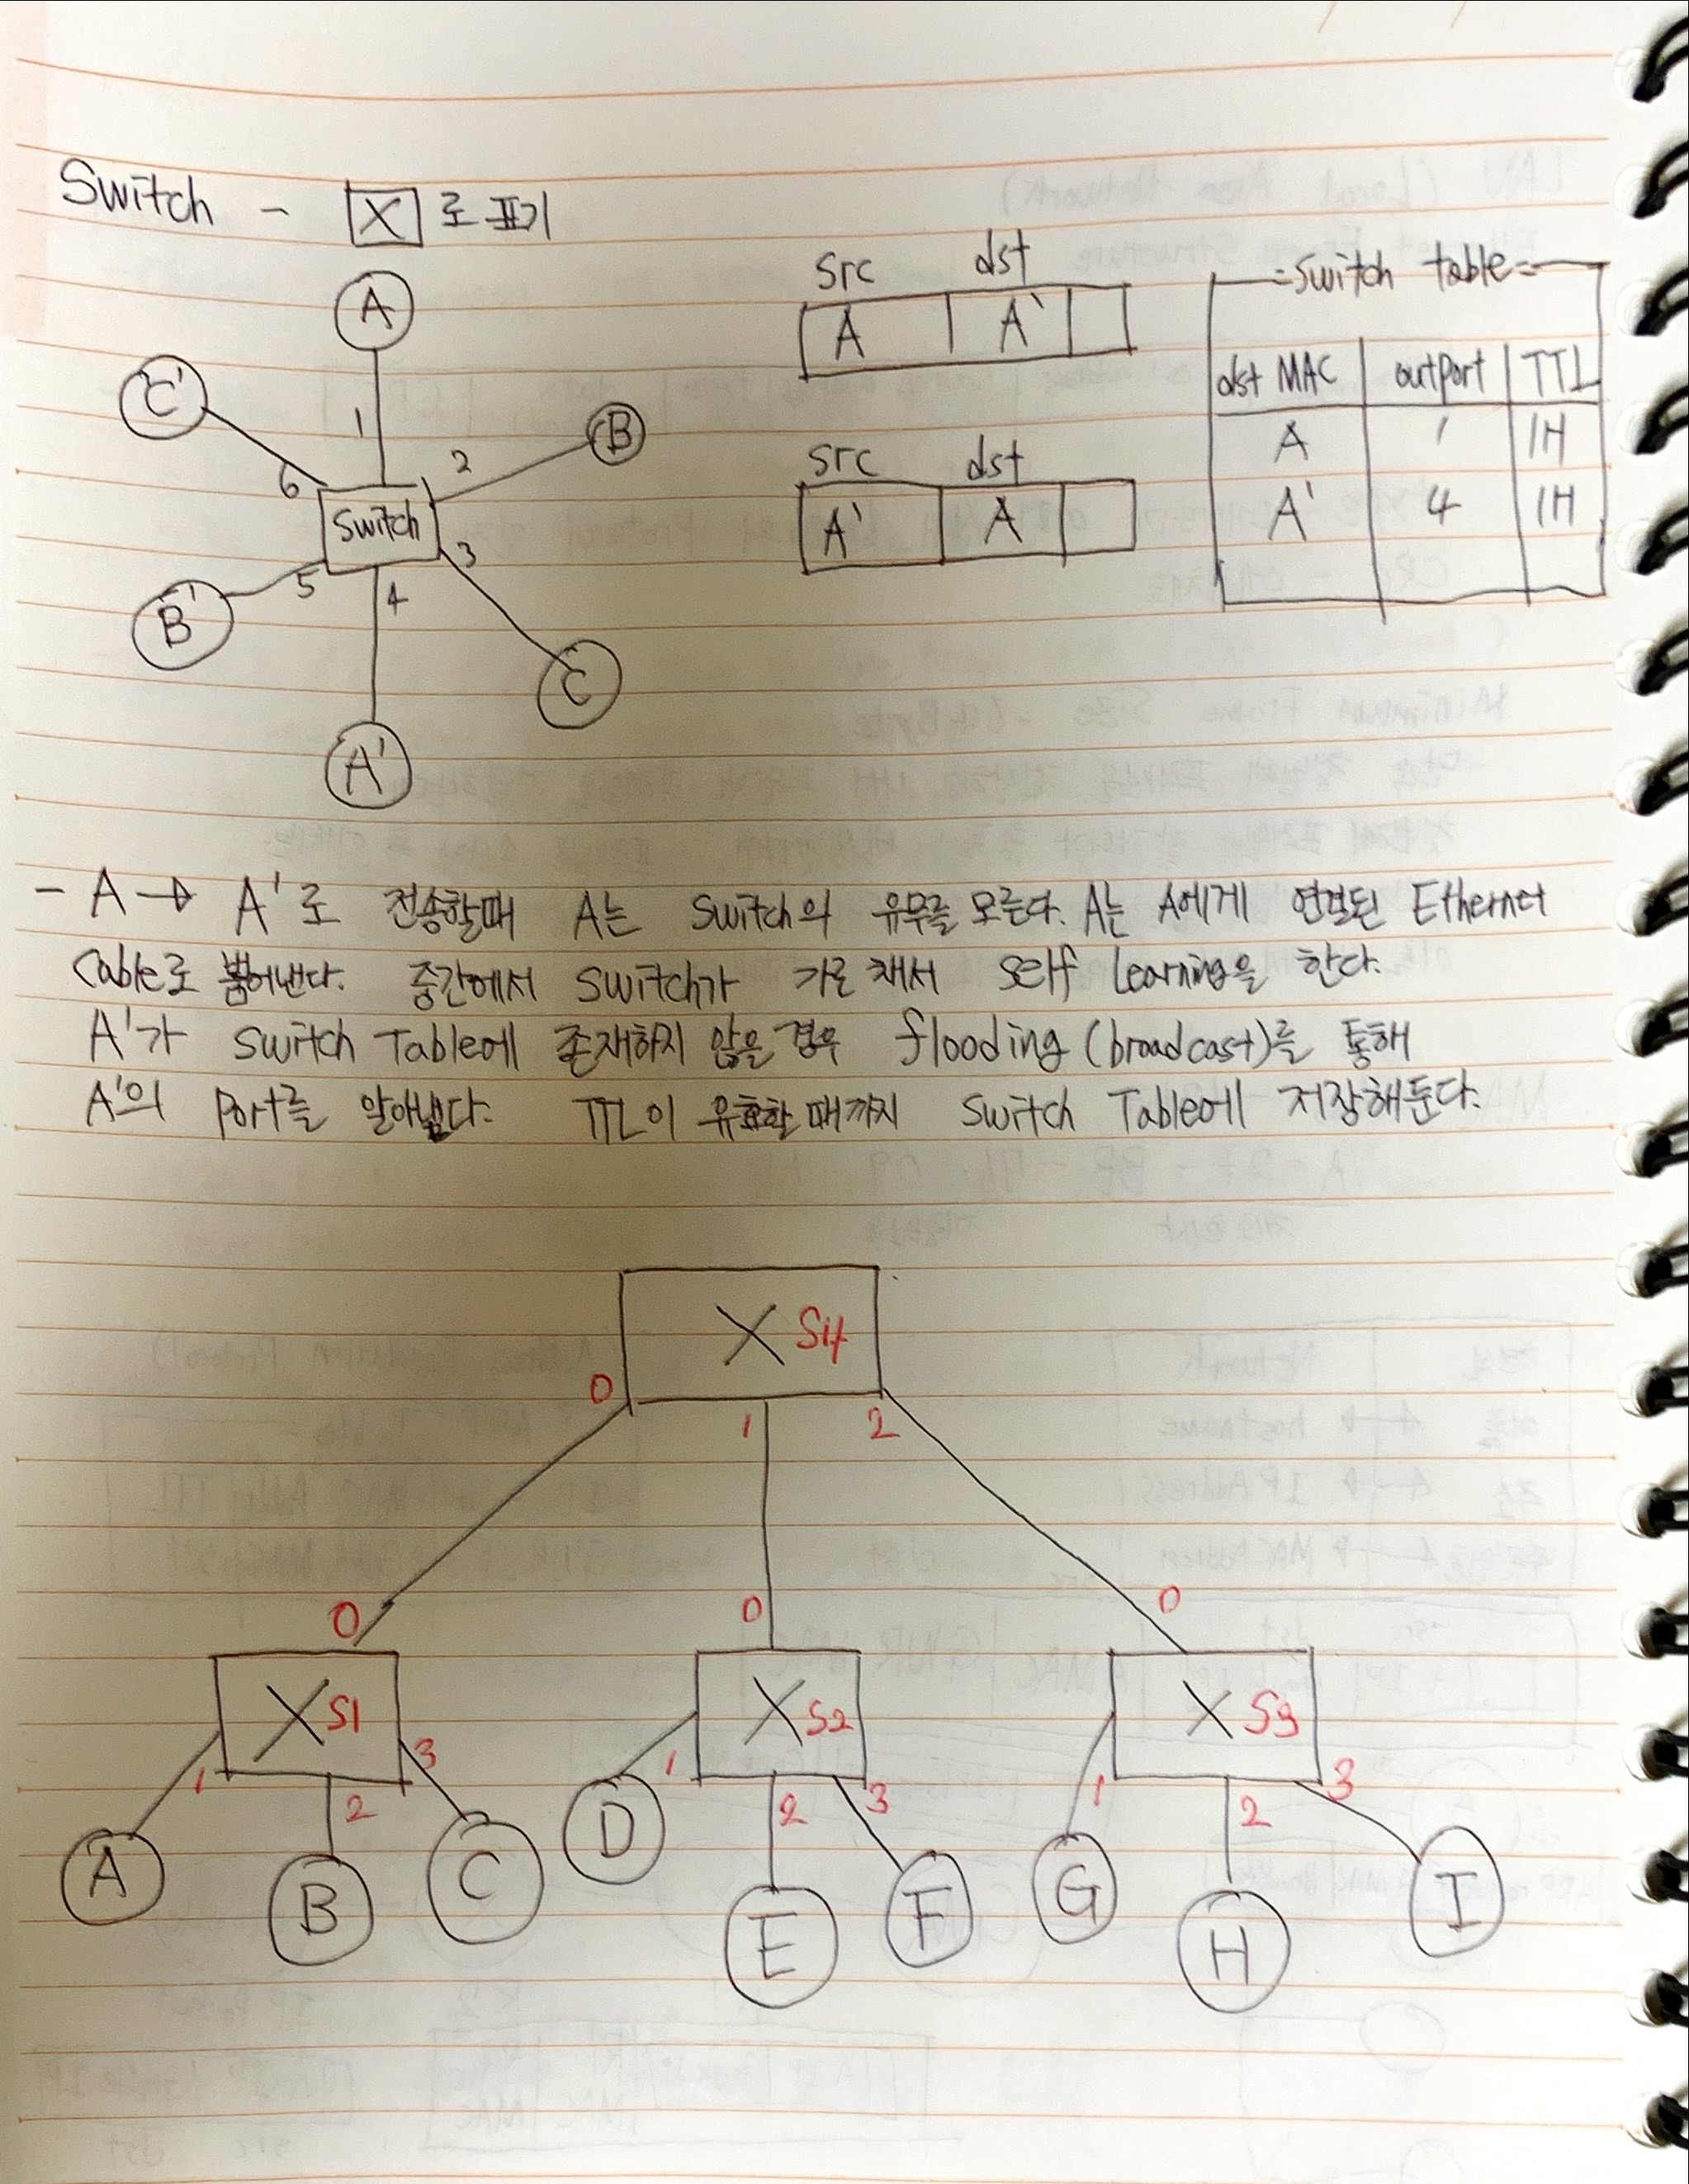 Switch - X 로 표기
A
C'
B
1
2
6
Switch
3
5
4
B'
C
A'
src dst
A A'
src dst
A' A
Switch table
dst MAC outport TTL
A 1 1H
A' 4 1H
- A → A'로 전송할때 A는 Switch의 유무를 모른다. A는 A에게 연결된 Ethernet
Cable로 뿜어낸다. 중간에서 Switch가 가로채서 Self Learning을 한다.
A'가 Switch Table에 존재하지 않을 경우 flooding (broadcast)를 통해
A'의 Port를 알아낸다. TTL이 유효할때까지 Switch Table에 저장해둔다.
X S4
0 1 2
0 0 0
X S1 X S2 X S3
1 2 3 1 2 3 1 2 3
A B C D E F G H I